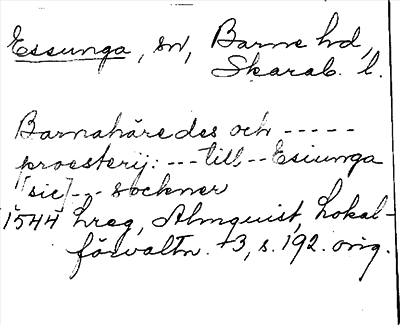 Essunga, sn, Barne hd,
Skarab. l.
Barnahäredes och -----
proesterij: --- till -- Esiunga
[sic] --- sockner
1544 hreg, Almquist, Lokal-
förvaltn. 3, s. 192. orig.